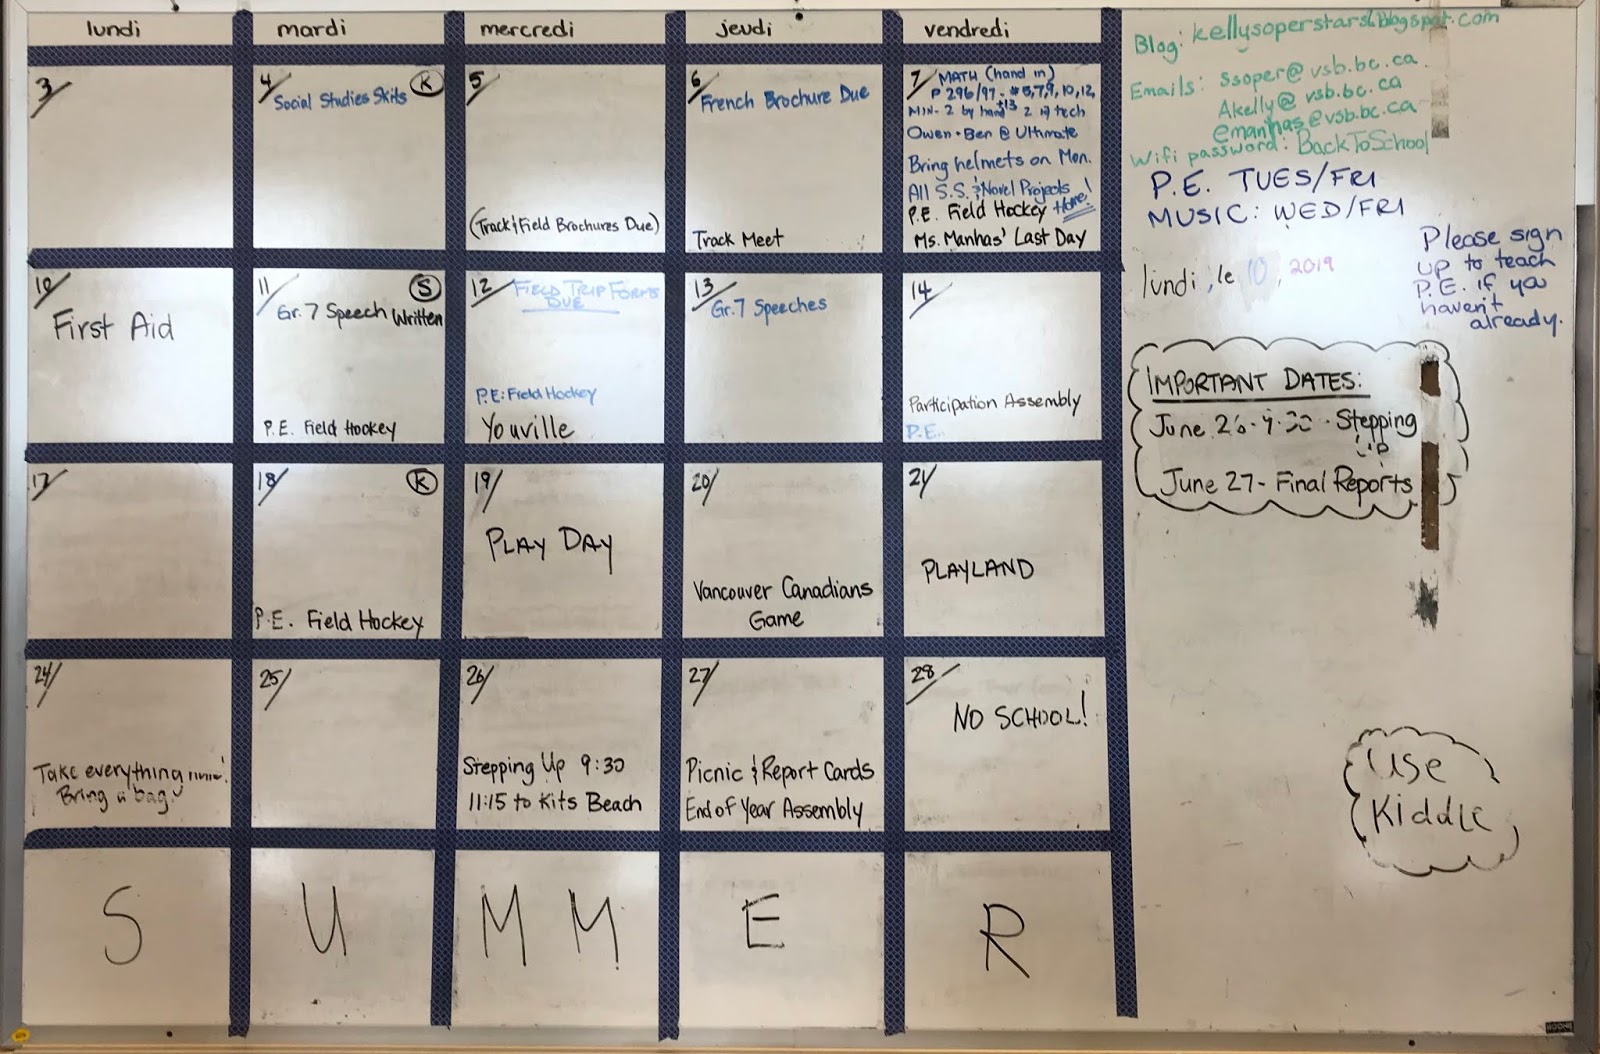 lundi
mardi
mercredi
jeudi
vendredi
3/
4/
K
Social Studies Skits
5/
(Track & Field Brochures Due)
6/
French Brochure Due
Track Meet
7/
MATH (hand in)
P 296/97 - # 5,7,9,10,12,
#13
MIN - 2 by hand 2 tech
Owen + Ben @ Ultimate
Bring helmets on Mon.
All S.S. & Novel Projects
Home!
P.E. Field Hockey
Ms. Manhas' Last Day
10/
First Aid
11/
S
Gr. 7 Speech Written
P.E. Field Hockey
12/
FIELD TRIP FORMS
DUE
P.E: Field Hockey
Youville
13/
Gr. 7 Speeches
14/
Participation Assembly
P.E.
17/
18/
K
P.E. Field Hockey
19/
PLAY DAY
20/
Vancouver Canadians
Game
21/
PLAYLAND
24/
Take everything
Bring a bag
25/
26/
Stepping Up 9:30
11:15 to Kits Beach
27/
Picnic & Report Cards
End of Year Assembly
28/
NO SCHOOL!
S U M M E R
Blog: kellysoperstars1.blogspot.com
Emails: ssoper@vsb.bc.ca
Akelly@vsb.bc.ca
emanhas@vsb.bc.ca
Wifi password: BackToSchool
P.E. TUES/FRI
MUSIC: WED/FRI
lundi, le 10, 2019
Please sign
up to teach
P.E. if you
haven't
already.
IMPORTANT DATES:
June 26 - 9:30 - Stepping
Up
June 27 - Final Reports
Use
Kiddle